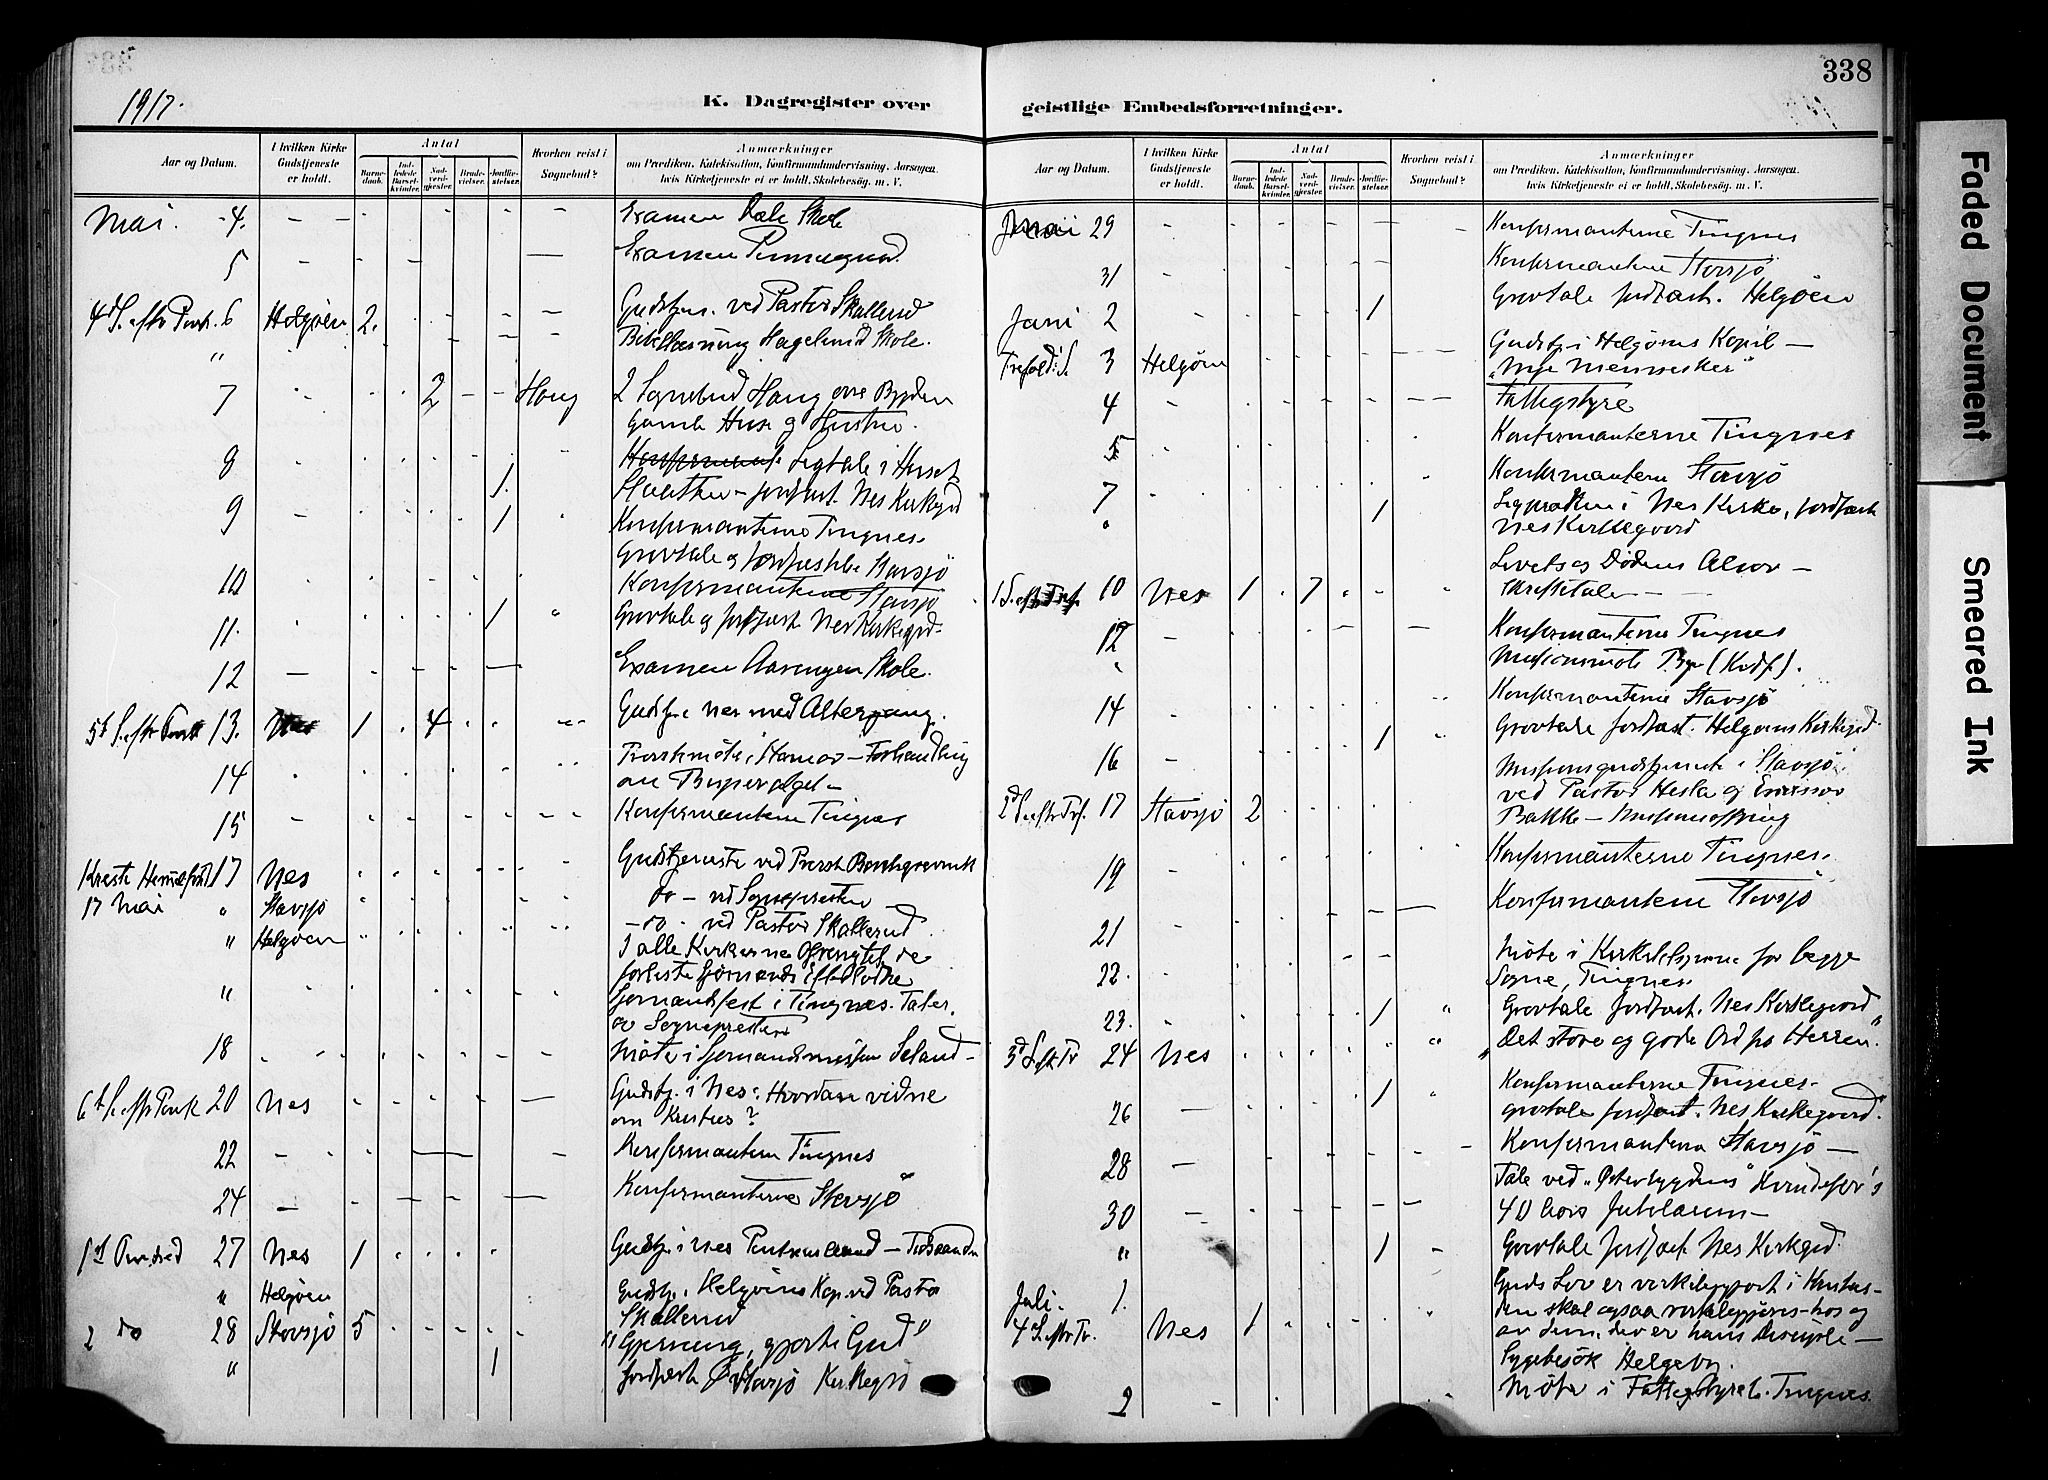 338
1917.
K. Dagregister over geistlige Embedsforretninger.
Aar og Datum.
I hvilken Kirke Gudstjeneste er holdt.
Antal
Barnedaab.
Indledede Barselkvinder.
Nadverdgjester.
Brudevielser.
Jordfæstelser.
Hvorhen reist i Sognebud?
Anmærkninger
om Prædiken, Katekisation, Konfirmandundervisning, Aarsagen,
hvis Kirketjeneste ei er holdt, Skolebesøg. m. V.
Mai. 4. Examen Dæle Skole
5 Examen
4d S. eftr Paask. 6 Helgøen 2. Gudstjen. ved Pastor Skallerud
" Bibellæsning Hagelund Skole.
7 2 Haug 2 Sognebud Haug øvre Bygden
gamle Huse og Hustru.
8 1. Ligtale i Huset
jordfæst. Nes Kirkegrd
9 1 Konfirmanterne Tingnes.
Gravtale og jordfæstelse Stavsjö
10 Konfirmanterne Stavsjö
11. 1 Gravtale og jordfæst Nes Kirkegrd.
12 Examen Aasengen Skole.
5t S. eftr Paask 13. Nes 1 4 Gudstj. i Nes med Altergang.
14 Provstemöte i Hamar – Forhandling
om Bispevalget –
15 Konfirmanterne Tingnes
Kristi Himmelfart 17 Nes Gudstjeneste ved Provst Borchgrevink
17 Mai " Stavsjö do – ved Sognepresten
" Helgøen – do – ved Pastor Skallerud
I alle Kirkerne Ofringtil de
forliste Sjömænds Efterlatte
" Sjömandsfest i Tingnes. Taler.
av Sognepresten
18 Möte i Sjömandsmissjon Seland –
6t S. eftr Paask 20 Nes Gudstj. i Nes: Hvordan vidne
om Kristus?
22 Konfirmanterne Tingnes
24 Konfirmanterne Stavsjö
1st Pinsed 27 Nes 1 Gudstj. i Nes
" Helgøen Gudstj. i Helgöens Kap. ved Pastor
Skallerud
2 do 28 Stavsjö 5 "Gjerning, gjort i Gud"
" 1 jordfæst Stavsjö Kirkegrd
Aar og Datum.
I hvilken Kirke Gudstjeneste er holdt.
Antal
Barnedaab.
Indledede Barselkvinder.
Nadverdgjester.
Brudevielser.
Jordfæstelser.
Hvorhen reist i Sognebud?
Anmærkninger
om Prædiken, Katekisation, Konfirmandundervisning, Aarsagen,
hvis Kirketjeneste ei er holdt, Skolebesøg. m. V.
Mai 29 Konfirmanterne Tingnes
31 Konfirmanterne Stavsjö
Juni 2 1 Gravtale jordfæst. Helgöen
Trefold. S. 3 Helgøen Gudstj. i Helgöens Kapel –
"Nye Mennesker"
4 Fattigstyre
5 Konfirmanterne Tingnes
7 Konfirmanterne Stavsjö
" 1 Ligpræken i Nes Kirke, jordfæst
Nes Kirkegaard
1 S. eftr Tref. 10 Nes 1 7 Livets og Dödens Alvor –
Skriftetale –
12 Konfirmanterne Tingnes
" Missionsmöte
14 Konfirmanterne Stavsjö
16 1 Gravtale jordfæst. Helgöens Kirkegrd.
2d S. eftr Trf. 17 Stavsjö 2 Missionsgudstjeneste i Stavsjö
ved Pastor Hesla og
Bakke – Missionsoffring
19 Konfirmanterne Tingnes.
21 Konfirmanterne Stavsjö
22. Möte i Kirkebestyrerne for begge
Sogne, Tingnes.
23. 1 Gravtale jordfæst. Nes Kirkegaard
3d S. eftr Tr 24 Nes "Det store og gode Ord fra Herren."
26 1 Konfirmanterne Tingnes.
gravtale jordfæst. Nes Kirkegaard.
28 Konfirmanterne Stavsjö –
30 Tale ved "Østerbygdens" Kvindefor's
40 Aars Jubilæum –
" 1 Gravtale jordfæst Nes Kirkegrd.
Juli. 1. Guds Lov er virkeliggjort i Kristus –
4 S. eftr Tr. Nes 1 den skal ogsaa virkeliggjøres hos og
av dem, der er hans Disciple –
Sygebesök Helgeby.
2 Möte i Fattigstyret. Tingnes.
Faded Document
Smeared Ink